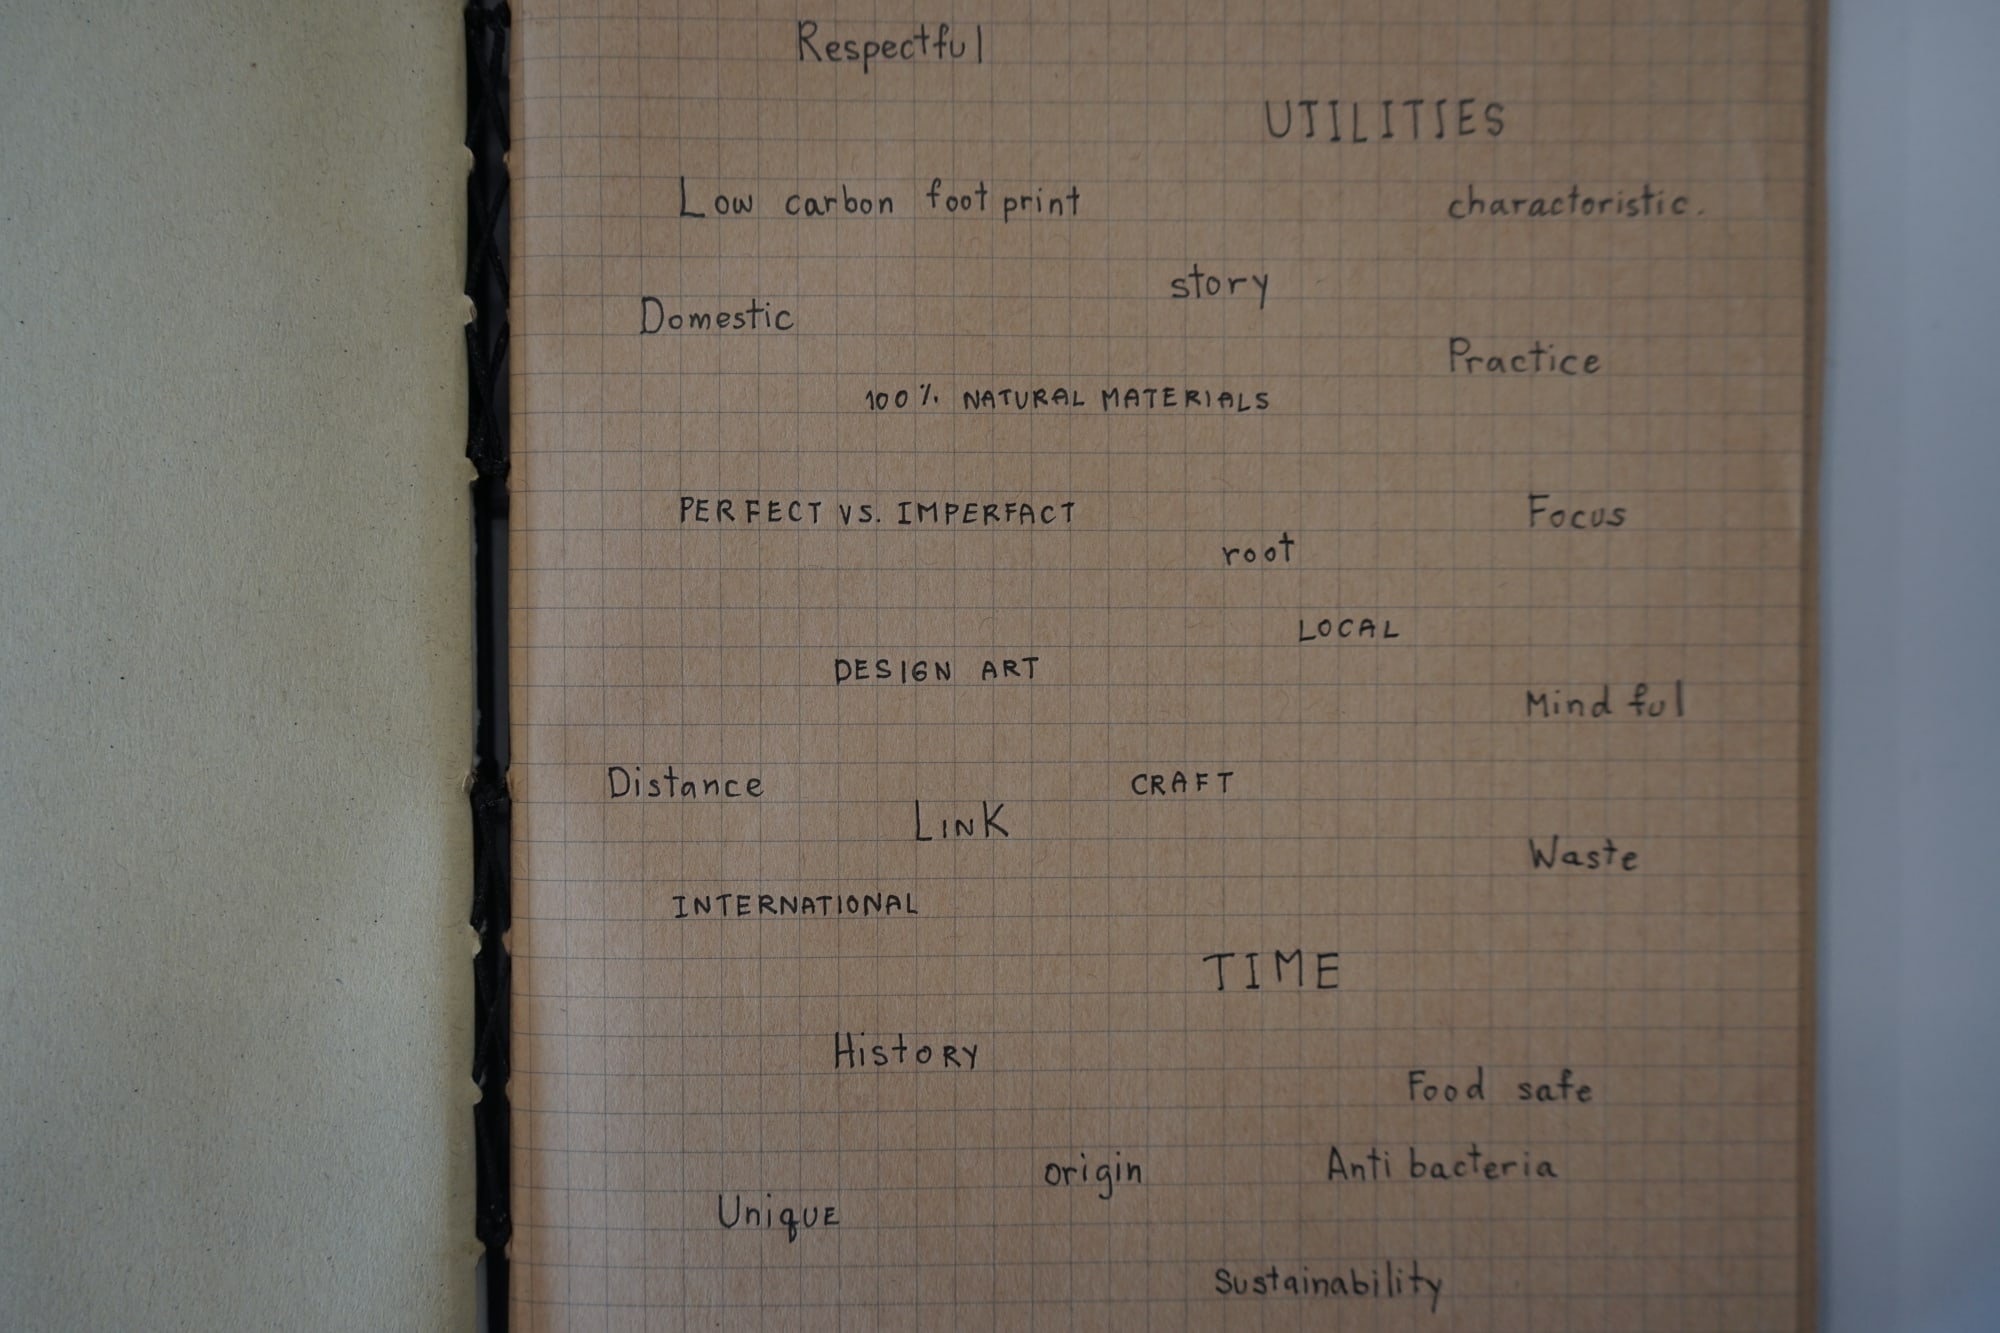 Respectful
UTILITIES
Low carbon foot print
charactoristic.
story
Domestic
Practice
100% NATURAL MATERIALS
PERFECT VS. IMPERFACT
Focus
root
LOCAL
DESIGN ART
Mind ful
Distance
CRAFT
LINK
Waste
INTERNATIONAL
TIME
HistoRY
Food safe
origin
Anti bacteria
UniqUE
Sustainability